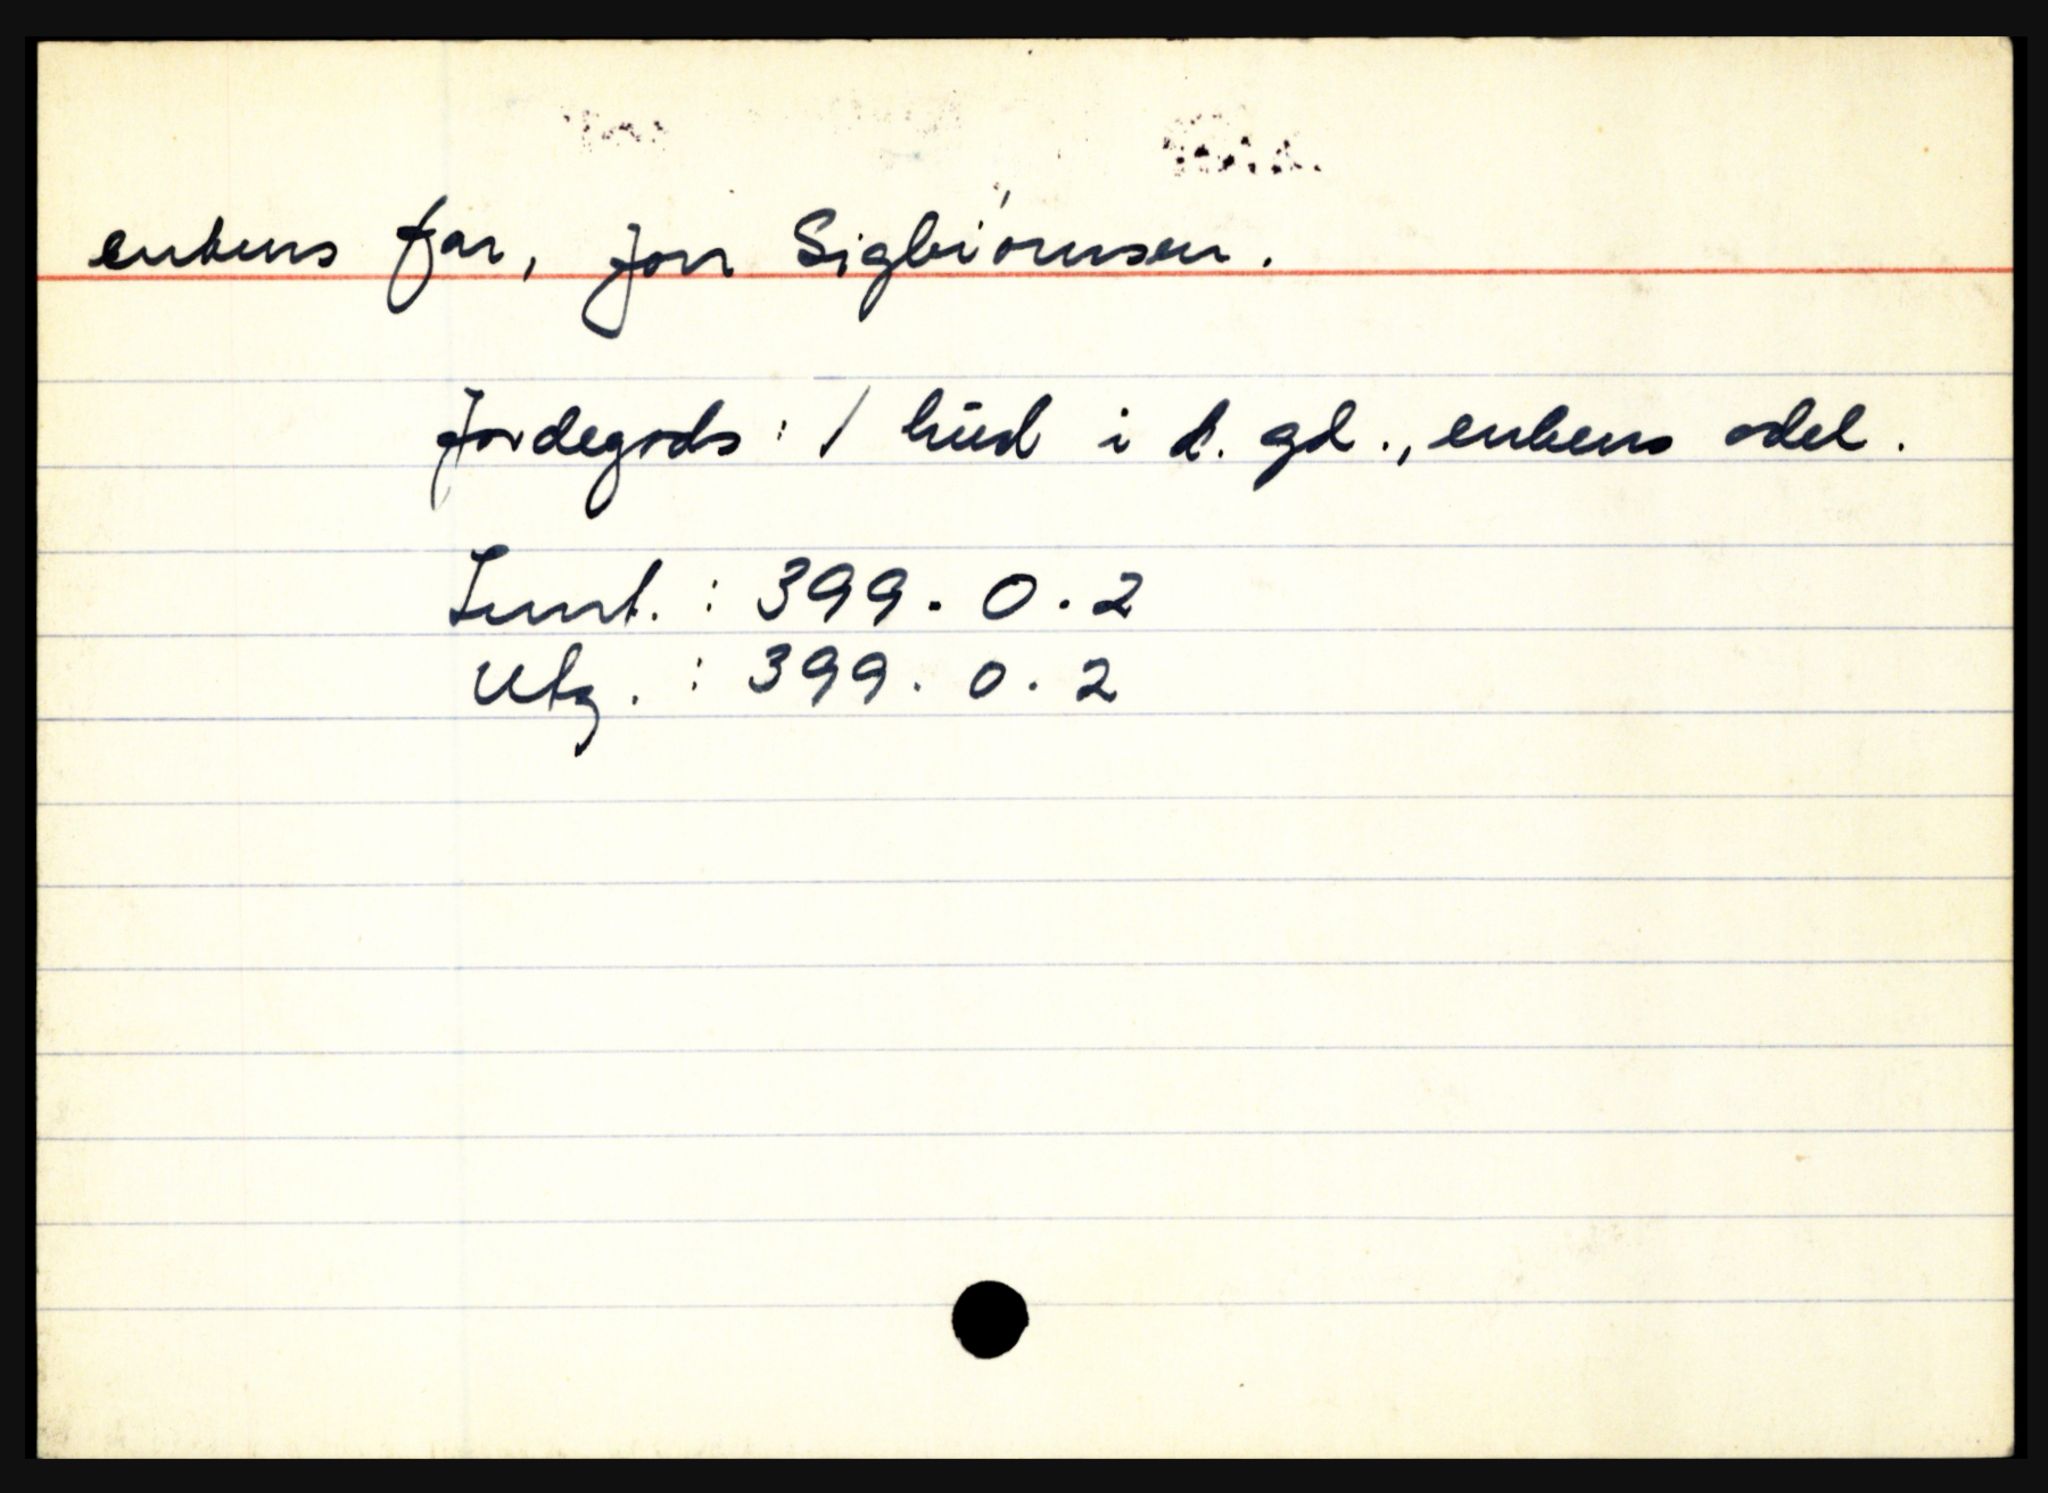 enkens far, Jon Sigbiórnsen.
Jordegods : 1 hud i d. gd., enkens odel.
Innt. : 399. 0. 2
Utg. : 399. 0. 2